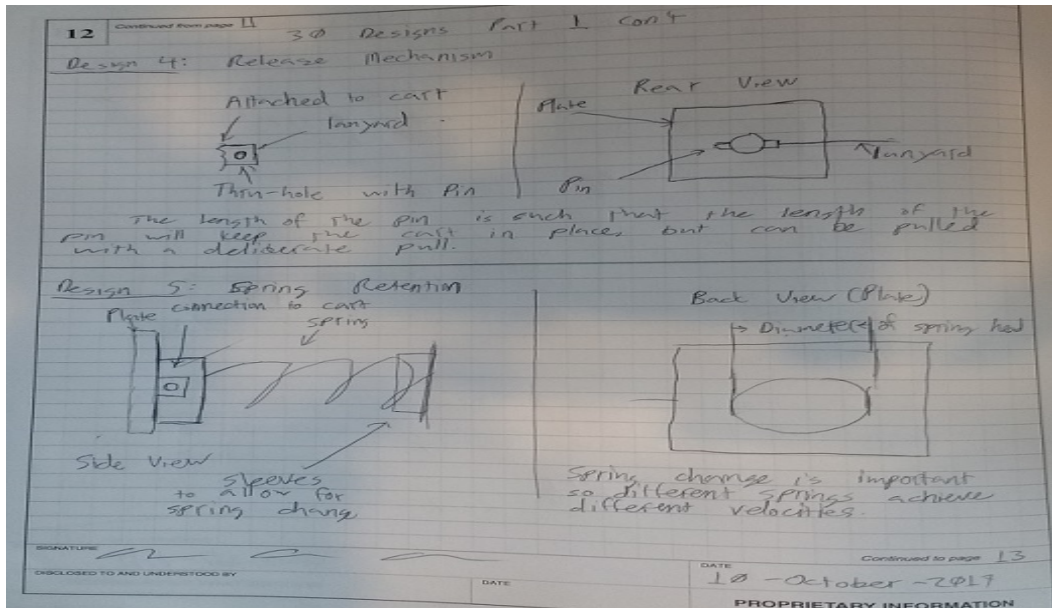 12 Continued from page 11
30 Designs Part 1 con't
Design 4: Release Mechanism
Attached to cart
lanyard
Thru-hole with Pin
Rear View
Plate
Pin
lanyard
The length of the pin is such that the length of the
pin will keep the cart in place, but can be pulled
with a deliberate pull.
Design 5: Spring Retention
Plate connection to cart
spring
Side View
sleeves
to allow for
spring change
Back View (Plate)
Diameter of spring
Spring change is important
so different springs achieve
different velocities.
SIGNATURE
DISCLOSED TO AND UNDERSTOOD BY
DATE
Continued to page 13
DATE
10-October-2017
PROPRIETARY INFORMATION